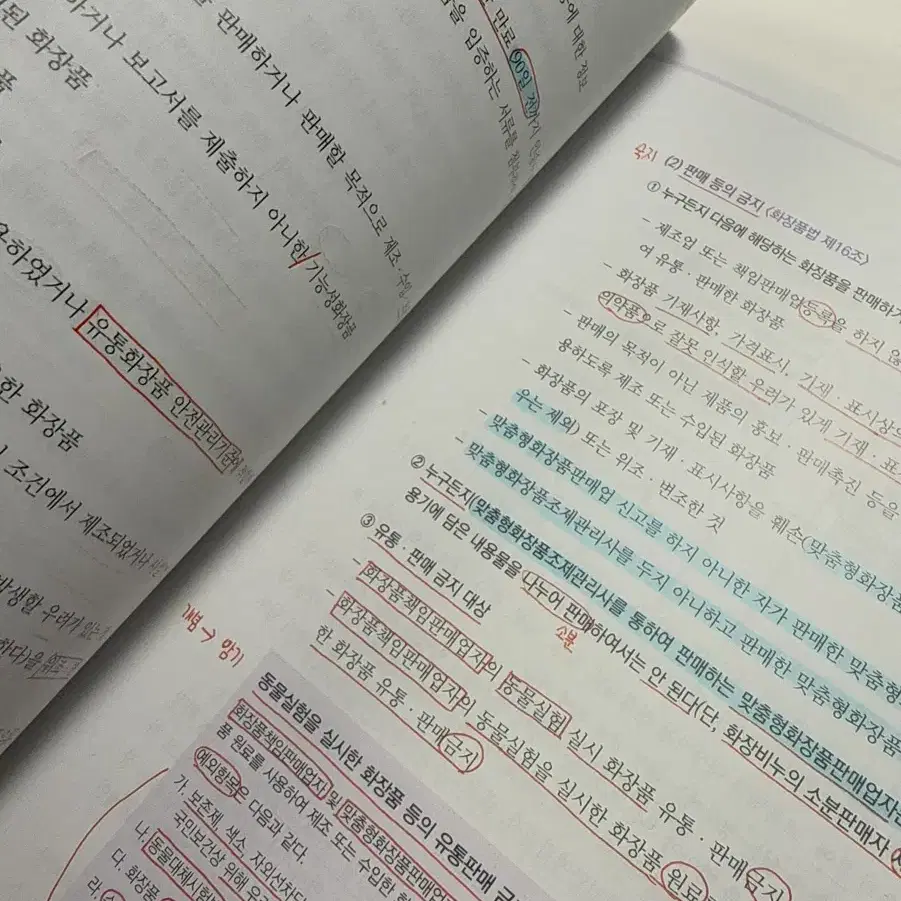 에 대한 정보
만료 90일 전까지
을 입증하는 서류를
판매하거나 판매할 목적으로 제조·수입
하거나 보고서를 제출하지 아니한 기능성화장품
된 화장품
품
하였거나 유통화장품 안전관리기준
한 화장품
조건에서 제조되었거나
발생할 우려가 있는
하다)을
숙지 (2) 판매 등의 금지 (화장품법 제16조)
① 누구든지 다음에 해당하는 화장품을 판매하거
- 제조업 또는 책임판매업 등록을 하지 않
여 유통·판매한 화장품
- 화장품 기재사항, 가격표시, 기재·표시상의
의약품으로 잘못 인식할 우려가 있게 기재·표
- 판매의 목적이 아닌 제품의 홍보·판매촉진 등을
용하도록 제조 또는 수입된 화장품
- 화장품의 포장 및 기재·표시사항을 훼손(맞춤형화장품
우는 제외) 또는 위조·변조한 것
- 맞춤형화장품판매업 신고를 하지 아니한 자가 판매한 맞춤형
- 맞춤형화장품조제관리사를 두지 아니하고 판매한 맞춤형화장품
② 누구든지(맞춤형화장품조제관리사를 통하여 판매하는 맞춤형화장품판매업자
용기에 담은 내용물을 나누어 판매하여서는 안 된다(단, 화장비누의 소분판매자
소분
③ 유통·판매 금지 대상
- 화장품책임판매업자의 동물실험 실시 화장품 유통·판매금지
- 화장품책임판매업자의 동물실험을 실시한 화장품 원료
한 화장품 유통·판매금지
개념 → 암기
동물실험을 실시한 화장품 등의 유통판매 금
화장품책임판매업자 및 맞춤형화장품판매업
품 원료를 사용하여 제조 또는 수입한
예외항목은 다음과 같다.
가. 보존제, 색소, 자외선차단
국민보건상 위해 우
나. 동물대체시험
다. 화장품
라.